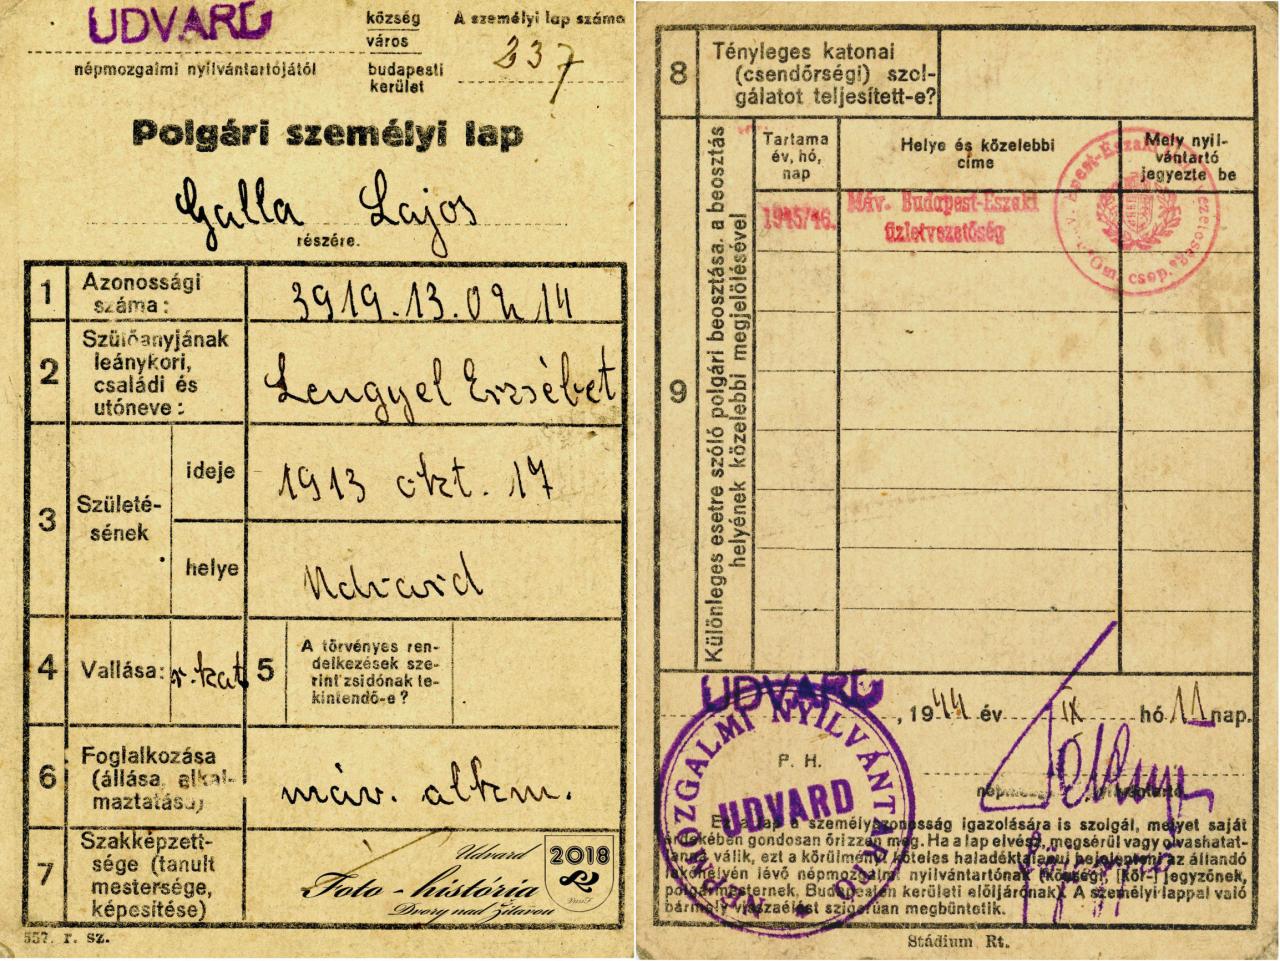 UDVARD
község
város
A személyi lap száma
237
népmozgalmi nyilvántartójától
budapesti
kerület
Polgári személyi lap
Galla Lajos
részére.
1
Azonossági
száma:
3919.13.02 14
2
Szülőanyjának
leánykori,
családi és
utóneve:
Lengyel Erzsébet
3
Születé-
sének
ideje
1913 okt. 17
helye
Udvard
4
Vallása:
r. kat
5
A törvényes ren-
delkezések sze-
rint zsidónak te-
kintendő-e?
6
Foglalkozása
(állása, alkal-
maztatása)
máv. altem.
7
Szakképzett-
sége (tanult
mestersége,
képesítése)
Udvard
Foto-história
Dvory nad Žitavou
2018
557. r. sz.
8
Tényleges katonai
(csendőrségi) szol-
gálatot teljesített-e?
9
Különleges esetre szóló polgári beosztása, a beosztás
helyének közelebbi megjelölésével
Tartama
év, hó,
nap
Helye és közelebbi
címe
Mely nyil-
vántartó
jegyezte be
1945/46.
Máv. Budapest-Északi
üzletvezetőség
UDVARD
, 1944 év IX hó 11 nap.
P. H.
NÉPMOZGALMI NYILVÁNTARTÓ
UDVARD
Ez a lap a személyazonosság igazolására is szolgál, melyet saját
érdekében gondosan őrizzen meg. Ha a lap elvész, megsérül vagy olvashatat-
lanná válik, ezt a körülményt köteles haladéktalanul bejelenteni az állandó
lakóhelyén lévő népmozgalmi nyilvántartónak (községi, [kör-] jegyzőnek,
polgármesternek, Budapesten kerületi elöljárónak). A személyi lappal való
bármely visszaélést szigorúan megbüntetik.
Stádium Rt.